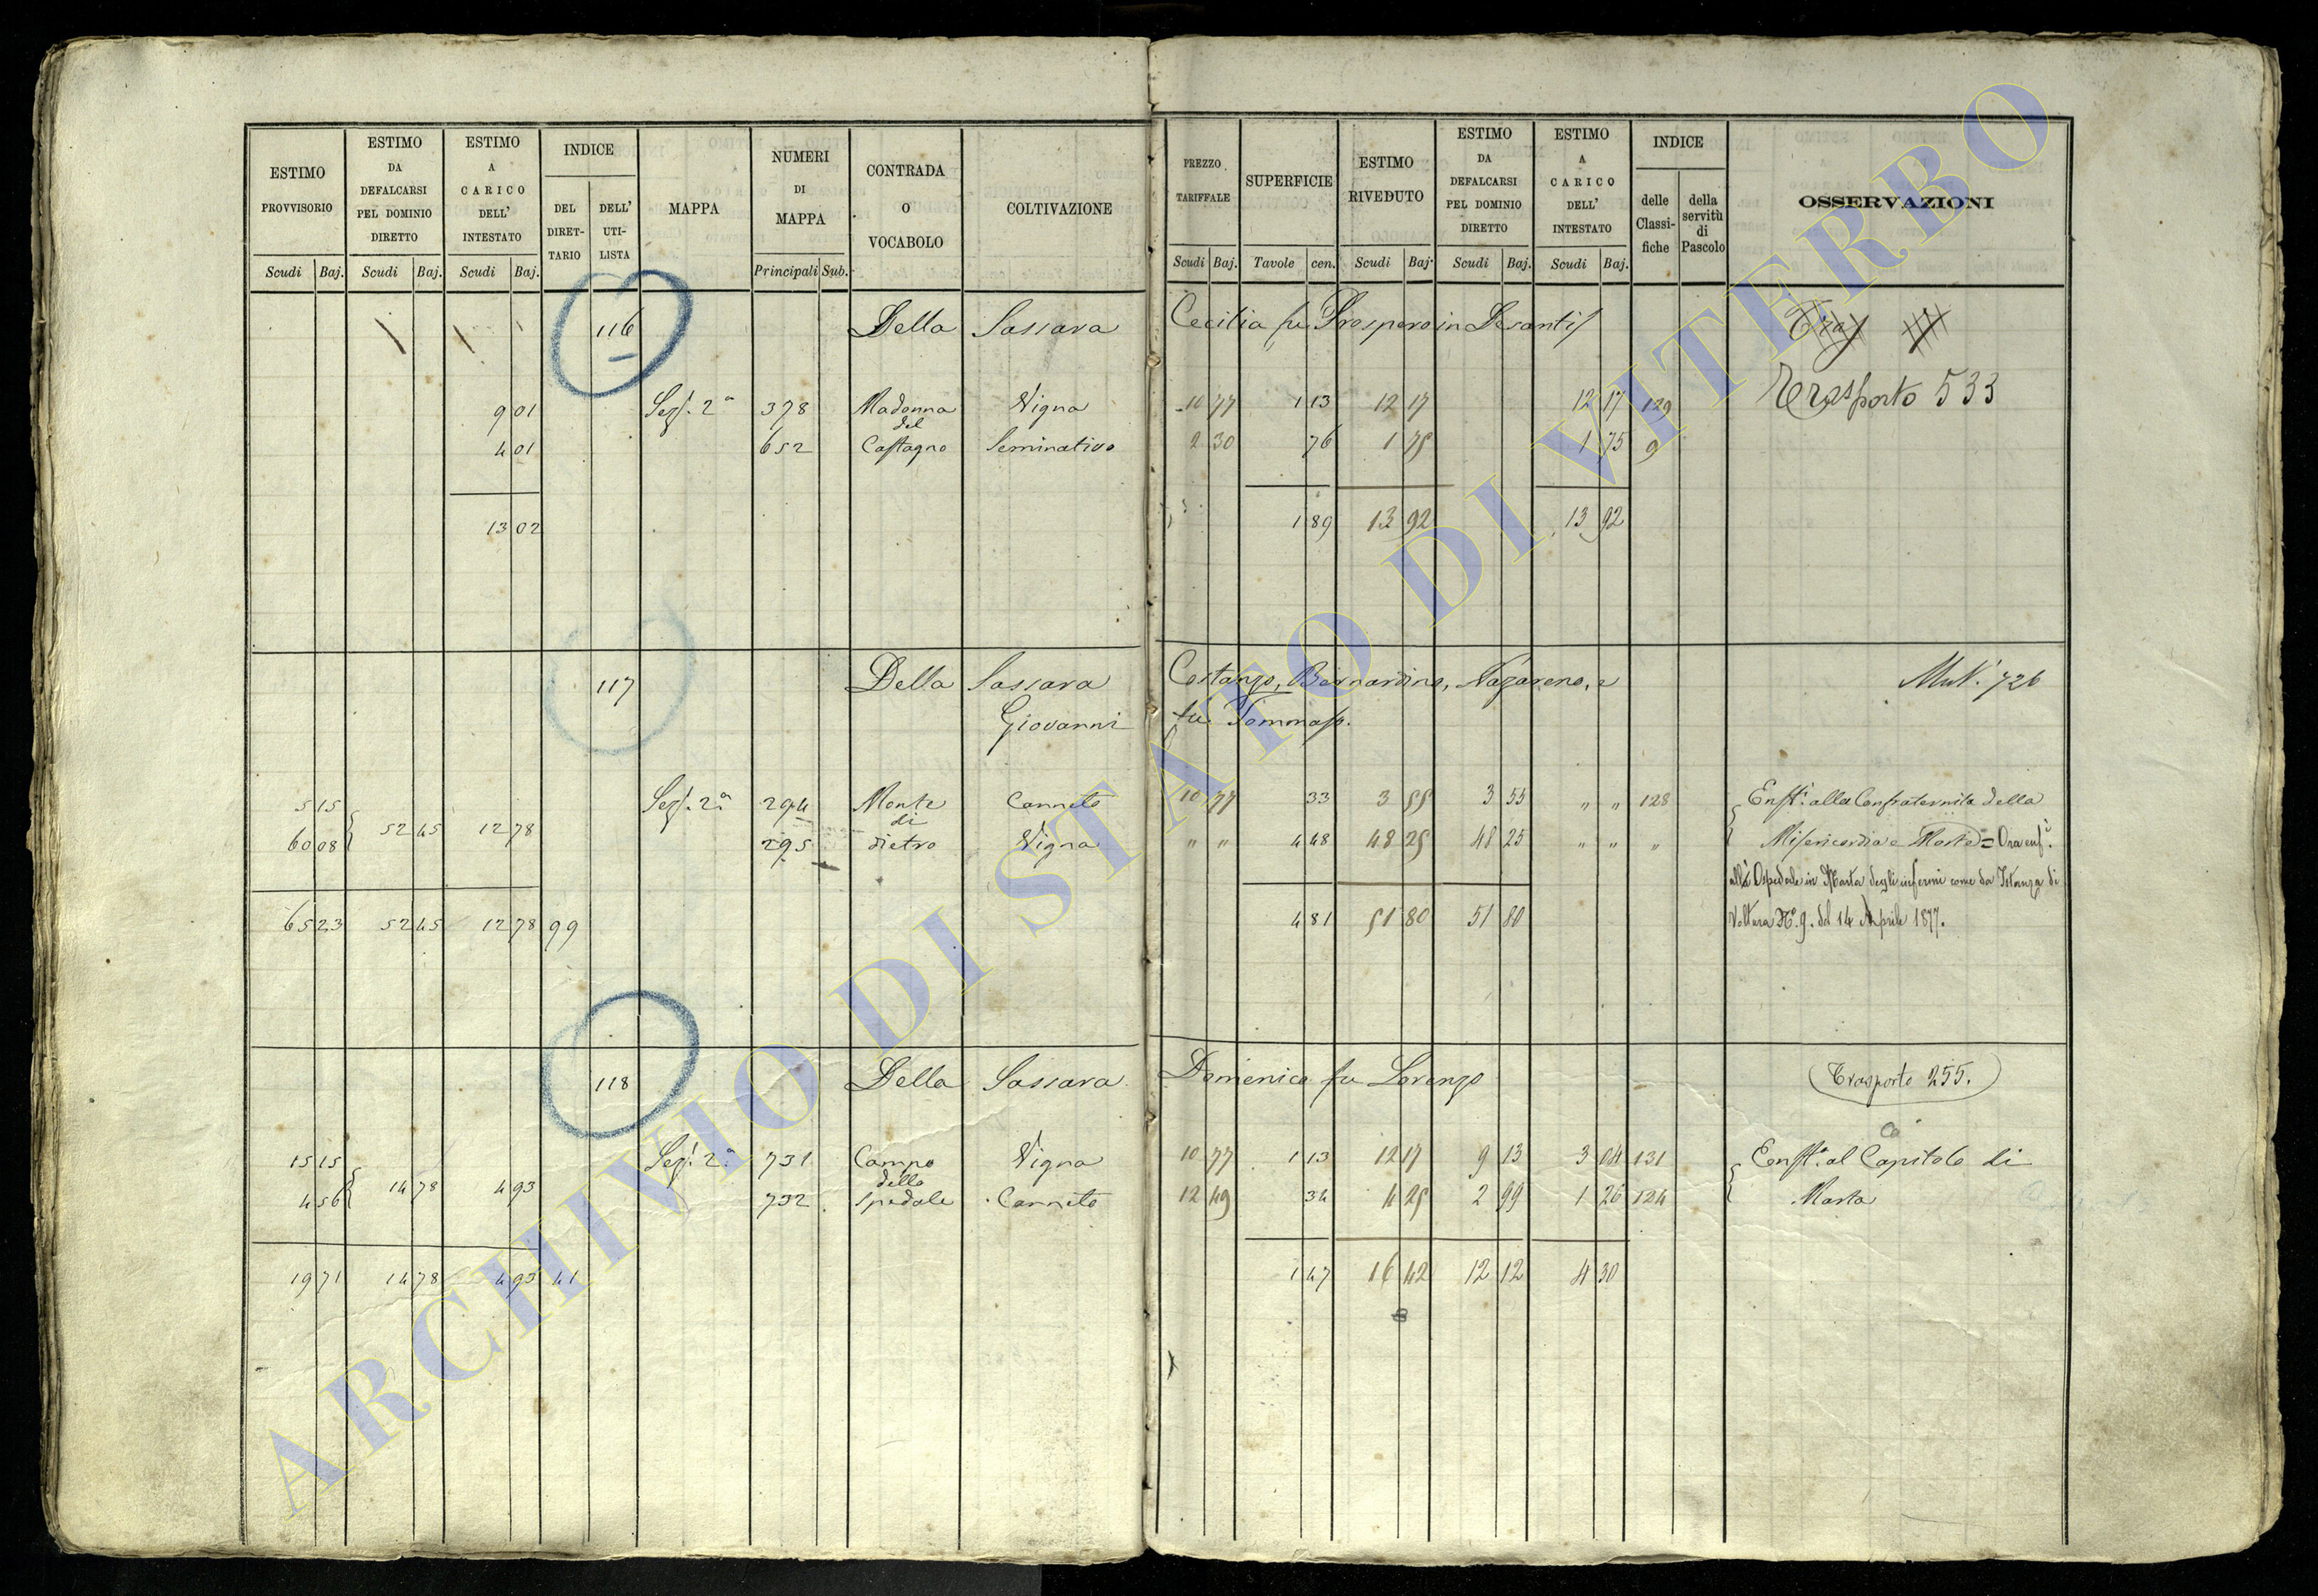 ESTIMO PROVVISORIO
ESTIMO DA DEFALCARSI PEL DOMINIO DIRETTO
ESTIMO A CARICO DELL' INTESTATO
INDICE
DEL DIRET- TARIO
DELL' UTI- LISTA
MAPPA
NUMERI DI MAPPA
CONTRADA O VOCABOLO
COLTIVAZIONE
PREZZO TARIFFALE
SUPERFICIE
ESTIMO RIVEDUTO
ESTIMO DA DEFALCARSI PEL DOMINIO DIRETTO
ESTIMO A CARICO DELL' INTESTATO
INDICE
delle Classi- fiche
della servitù di Pascolo
OSSERVAZIONI
Scudi Baj. Scudi Baj. Scudi Baj. Principali Sub. Scudi Baj. Tavole cen. Scudi Baj. Scudi Baj. Scudi Baj.
116 Della Sassara Cecilia fu Prospero in Desantis
Trasporto 533
9 01 Sez. 2a 378 Madonna Vigna 10 77 1 13 12 17 12 17 129
del
4 01 652 Castagno Seminativo 2 30 76 1 75 1 75 9
13 02 1 89 13 92 13 92
117 Della Sassara Costanzo, Bernardino, Nazareno, e Mut. 726
Giovanni fu Tommaso.
5 15 Sez. 2a 294 Monte Canneto 10 77 33 3 55 3 55 " " 128 Enfta. alla Confraternita della
52 45 12 78 di
60 08 295 dietro Vigna " " 4 48 48 25 48 25 " " " Misericordia e Morte = Ora enf.
all'Ospedale in Marta degli infermi come da Istanza di
65 23 52 45 12 78 99 4 81 51 80 51 80 Voltura No. 9. del 14 Aprile 1877.
118 Della Sassara Domenico fu Lorenzo Trasporto 255.
15 15 Sez. 2a 731 Campo Vigna 10 77 1 13 12 17 9 13 3 04 131 Enfta. al Capitolo di
14 78 4 93 dello
4 56 732 Spedale Canneto 12 49 34 4 25 2 99 1 26 124 Marta
19 71 14 78 4 93 41 1 47 16 42 12 12 4 30
ARCHIVIO DI STATO DI VITERBO